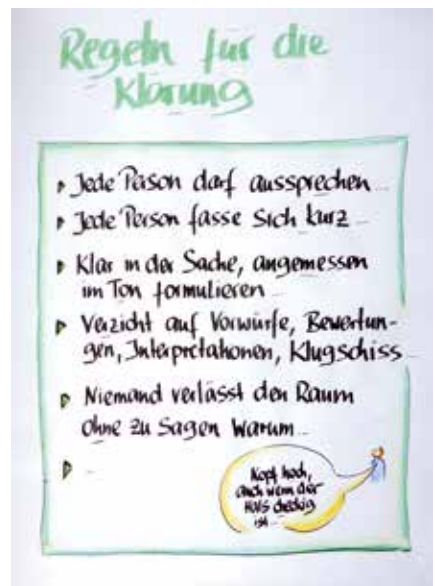 Regeln für die
Klärung
Jede Person darf aussprechen...
Jede Person fasse sich kurz...
Klar in der Sache, angemessen
im Ton formulieren...
Verzicht auf Vorwürfe, Bewertun-
gen, Interpretationen, Klugschiss...
Niemand verlässt den Raum
ohne zu sagen warum...
...
Kopf hoch,
auch wenn der
Hals dreckig
ist...